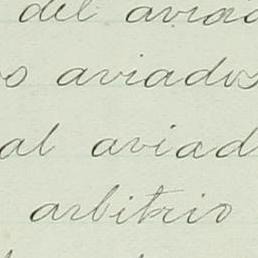 del aviad
os aviados
al aviad
arbitrio